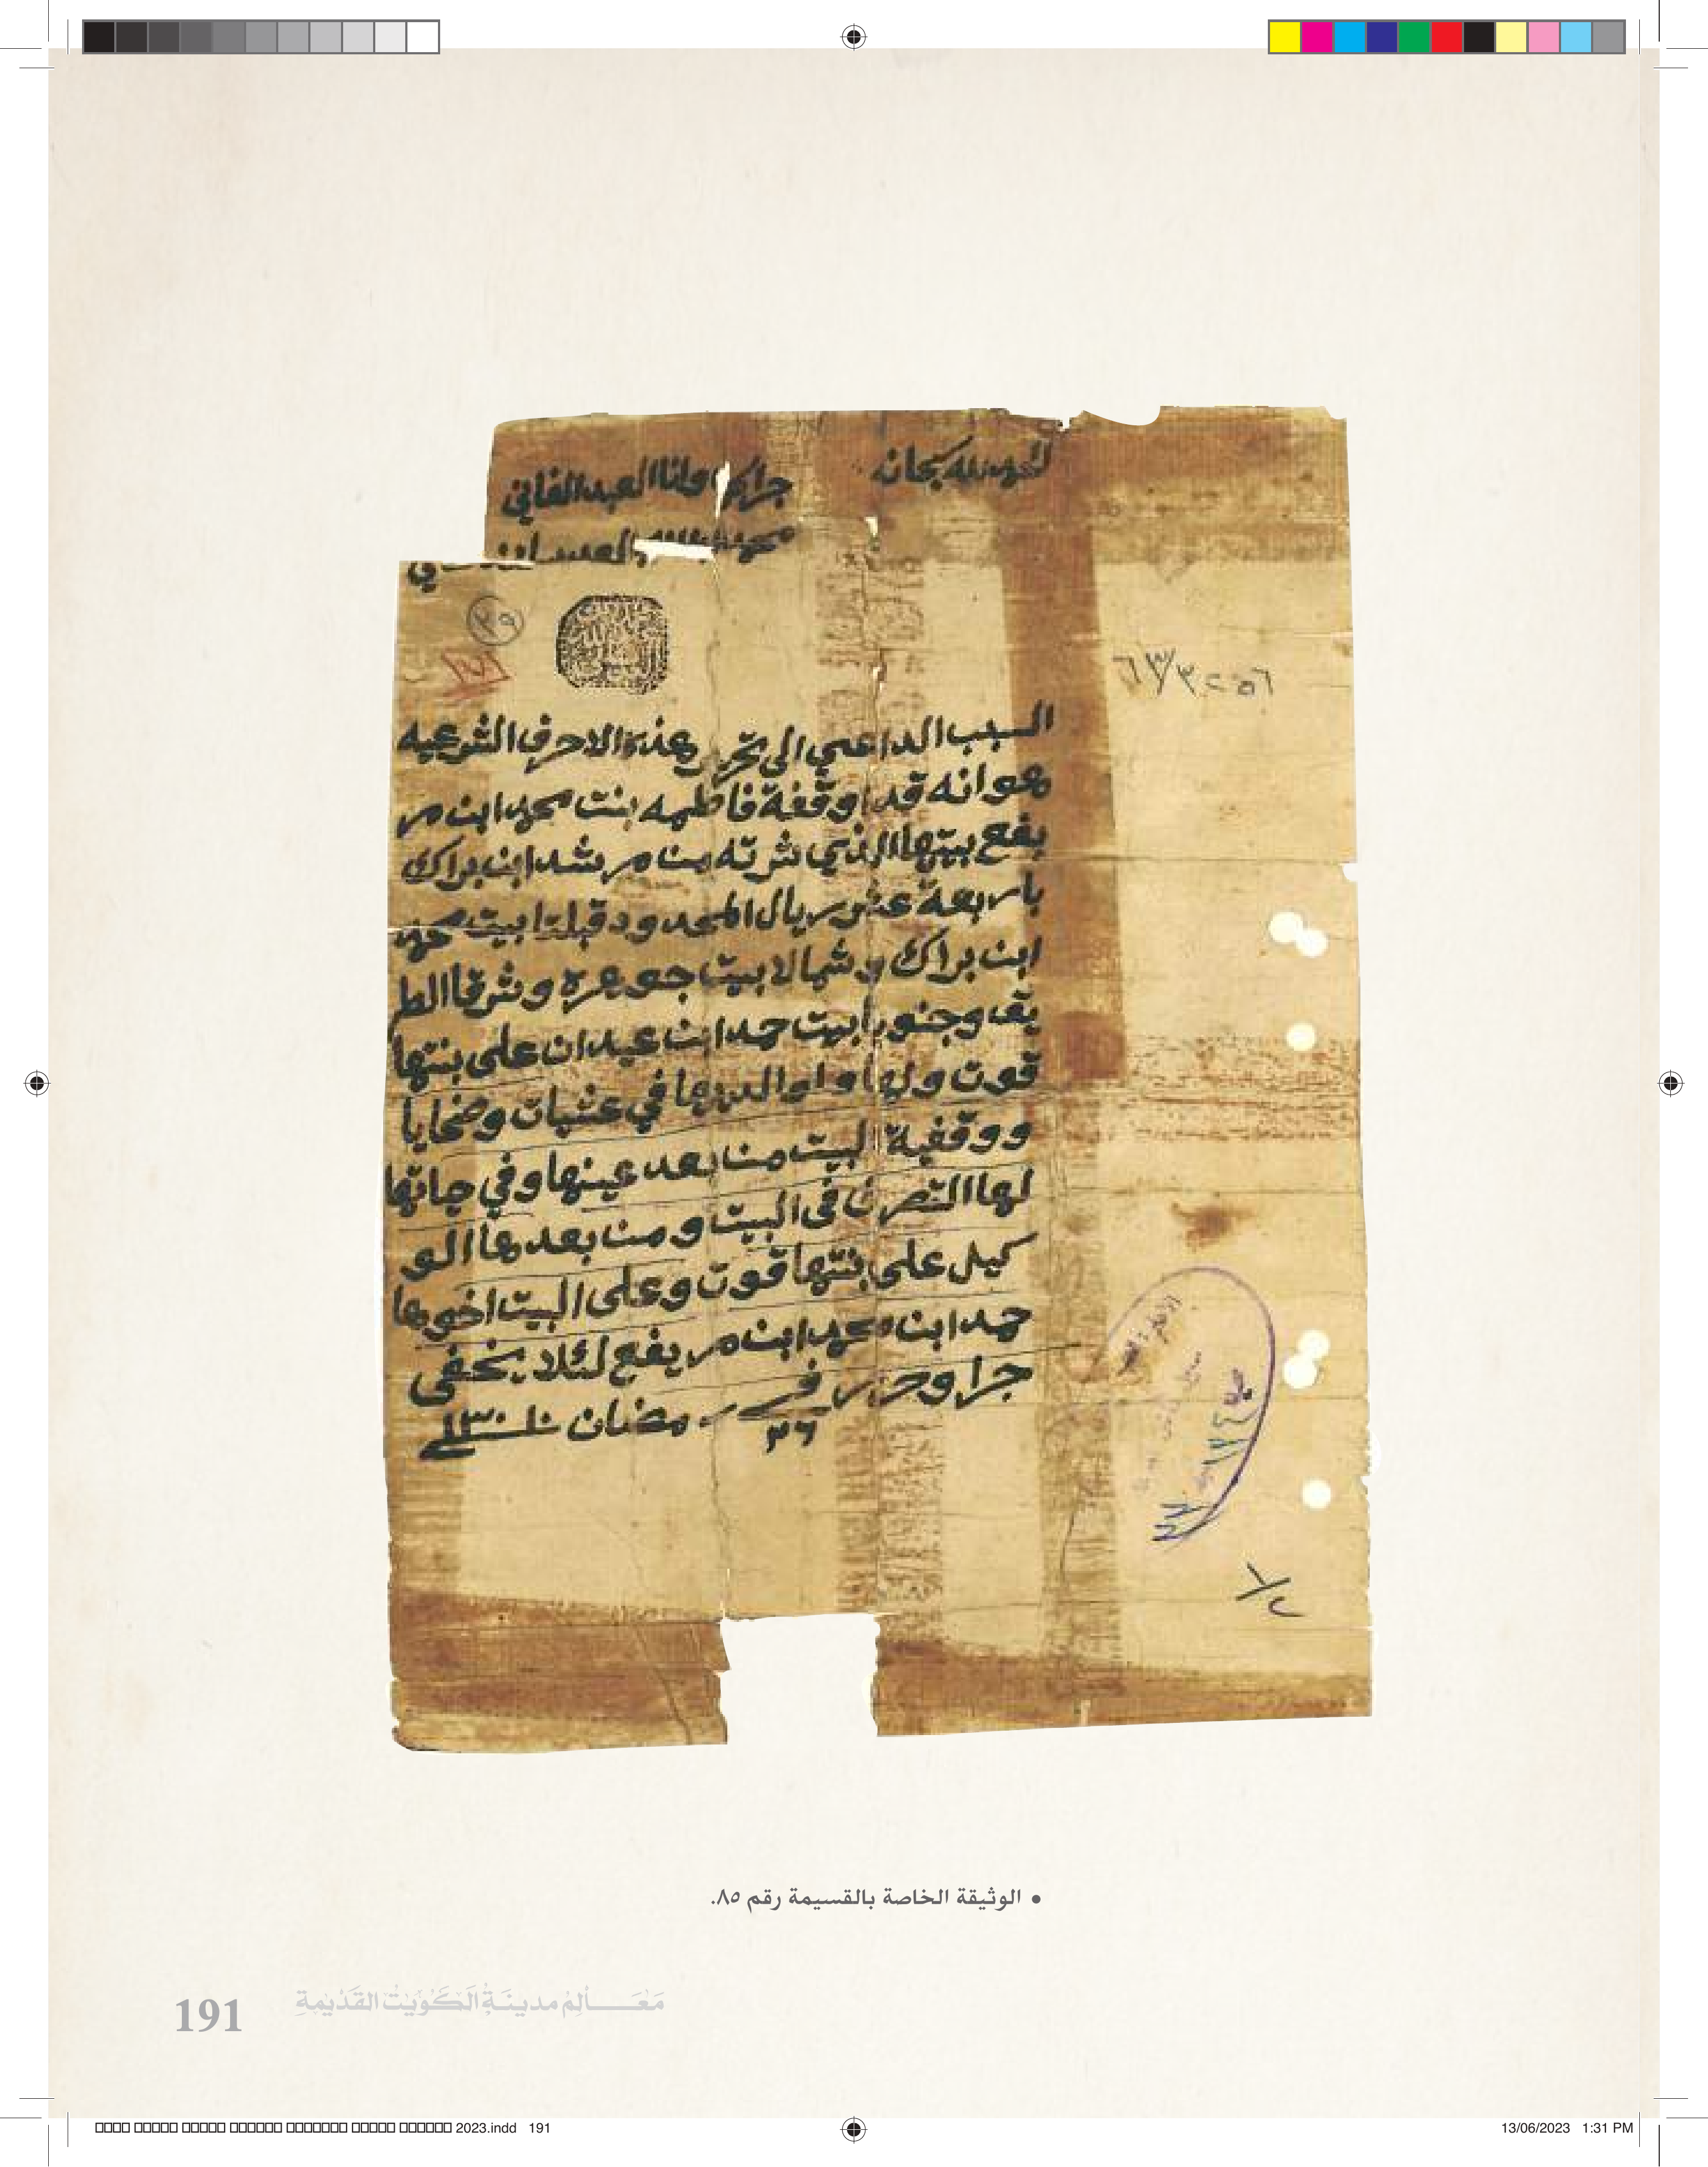 الحمد لله سبحانه
جرا كما وانا العبد الفاني
محمد بن عبدالله العدساني
٣٩
٥٦ ٢ ٣/٦٣
السبب الداعي الى تحرير هذه الاحرف الشرعيه
هو انه قد اوقفة فاطمه بنت محمد ابن مر
يفع بيتها الذي شرته من مرشد ابن براك
باربعة عشر ريال المحدود قبلتا بيت محمد
ابن براك وشمالا بيت جوعره وشرقا الطر
يق وجنوبا بيت حمد ابن عيدان على بنتها
قوت ولها ولوالديها في عشيات وضحايا
ووقفية البيت من بعد عينها وفي حياتها
لها التصرف في البيت ومن بعدها الو
كيل على بنتها قوت وعلى البيت اخوها
حمد ابن محمد ابن مريفع لئلا يخفى
جرا وحرر في ٢٦ رمضان سنة ١٣٠١
• الوثيقة الخاصة بالقسيمة رقم ٨٥.
مَعَـــالِمُ مدينَةِ الكُوَيْتُ القَدْيمةِ
191
2023.indd 191
13/06/2023 1:31 PM